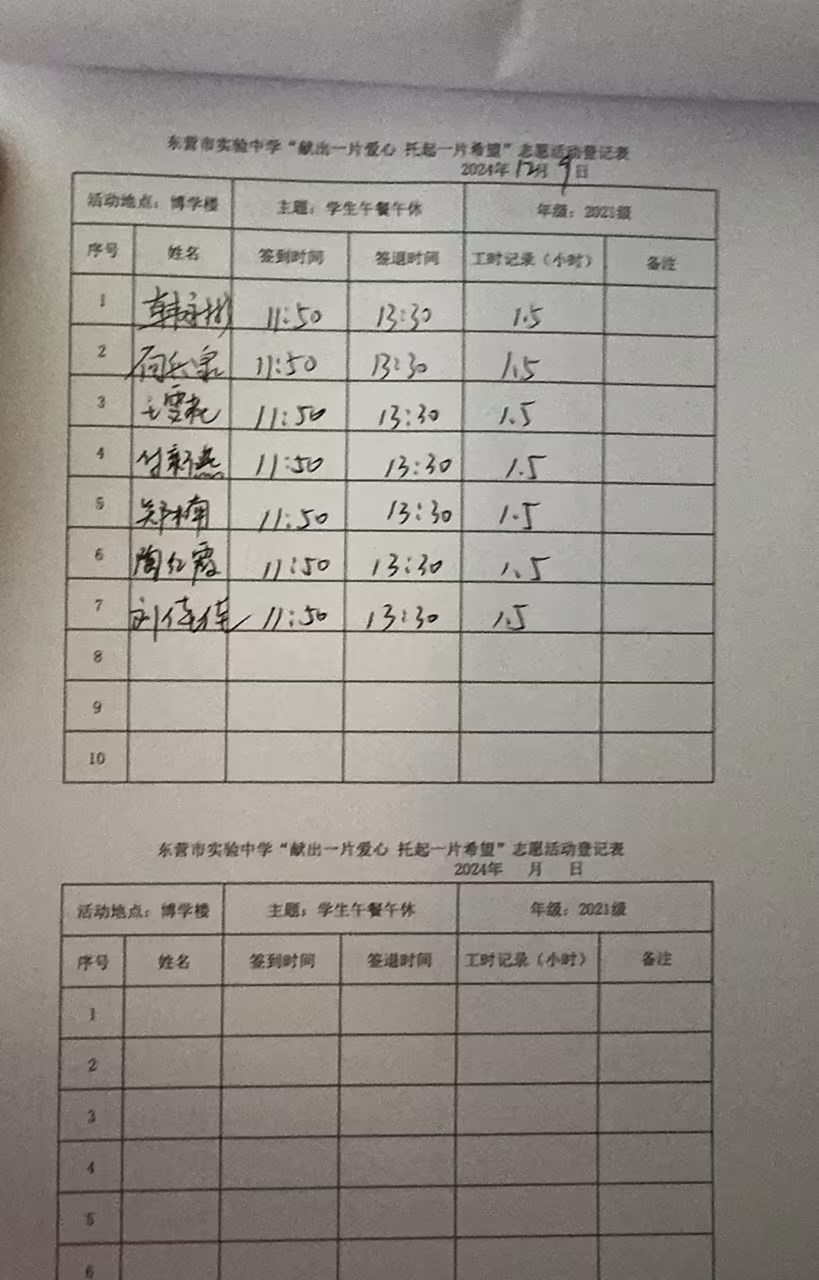 东营市实验中学“献出一片爱心 托起一片希望”志愿活动登记表
2024年12月9日
活动地点：博学楼 主题：学生午餐午休 年级：2021级
序号 姓名 签到时间 签退时间 工时记录（小时） 备注
1 11:50 13:30 1.5
2 11:50 13:30 1.5
3 11:50 13:30 1.5
4 付新燕 11:50 13:30 1.5
5 郑楠 11:50 13:30 1.5
6 陶红霞 11:50 13:30 1.5
7 刘倩倩 11:50 13:30 1.5
8
9
10
东营市实验中学“献出一片爱心 托起一片希望”志愿活动登记表
2024年 月 日
活动地点：博学楼 主题：学生午餐午休 年级：2021级
序号 姓名 签到时间 签退时间 工时记录（小时） 备注
1
2
3
4
5
6